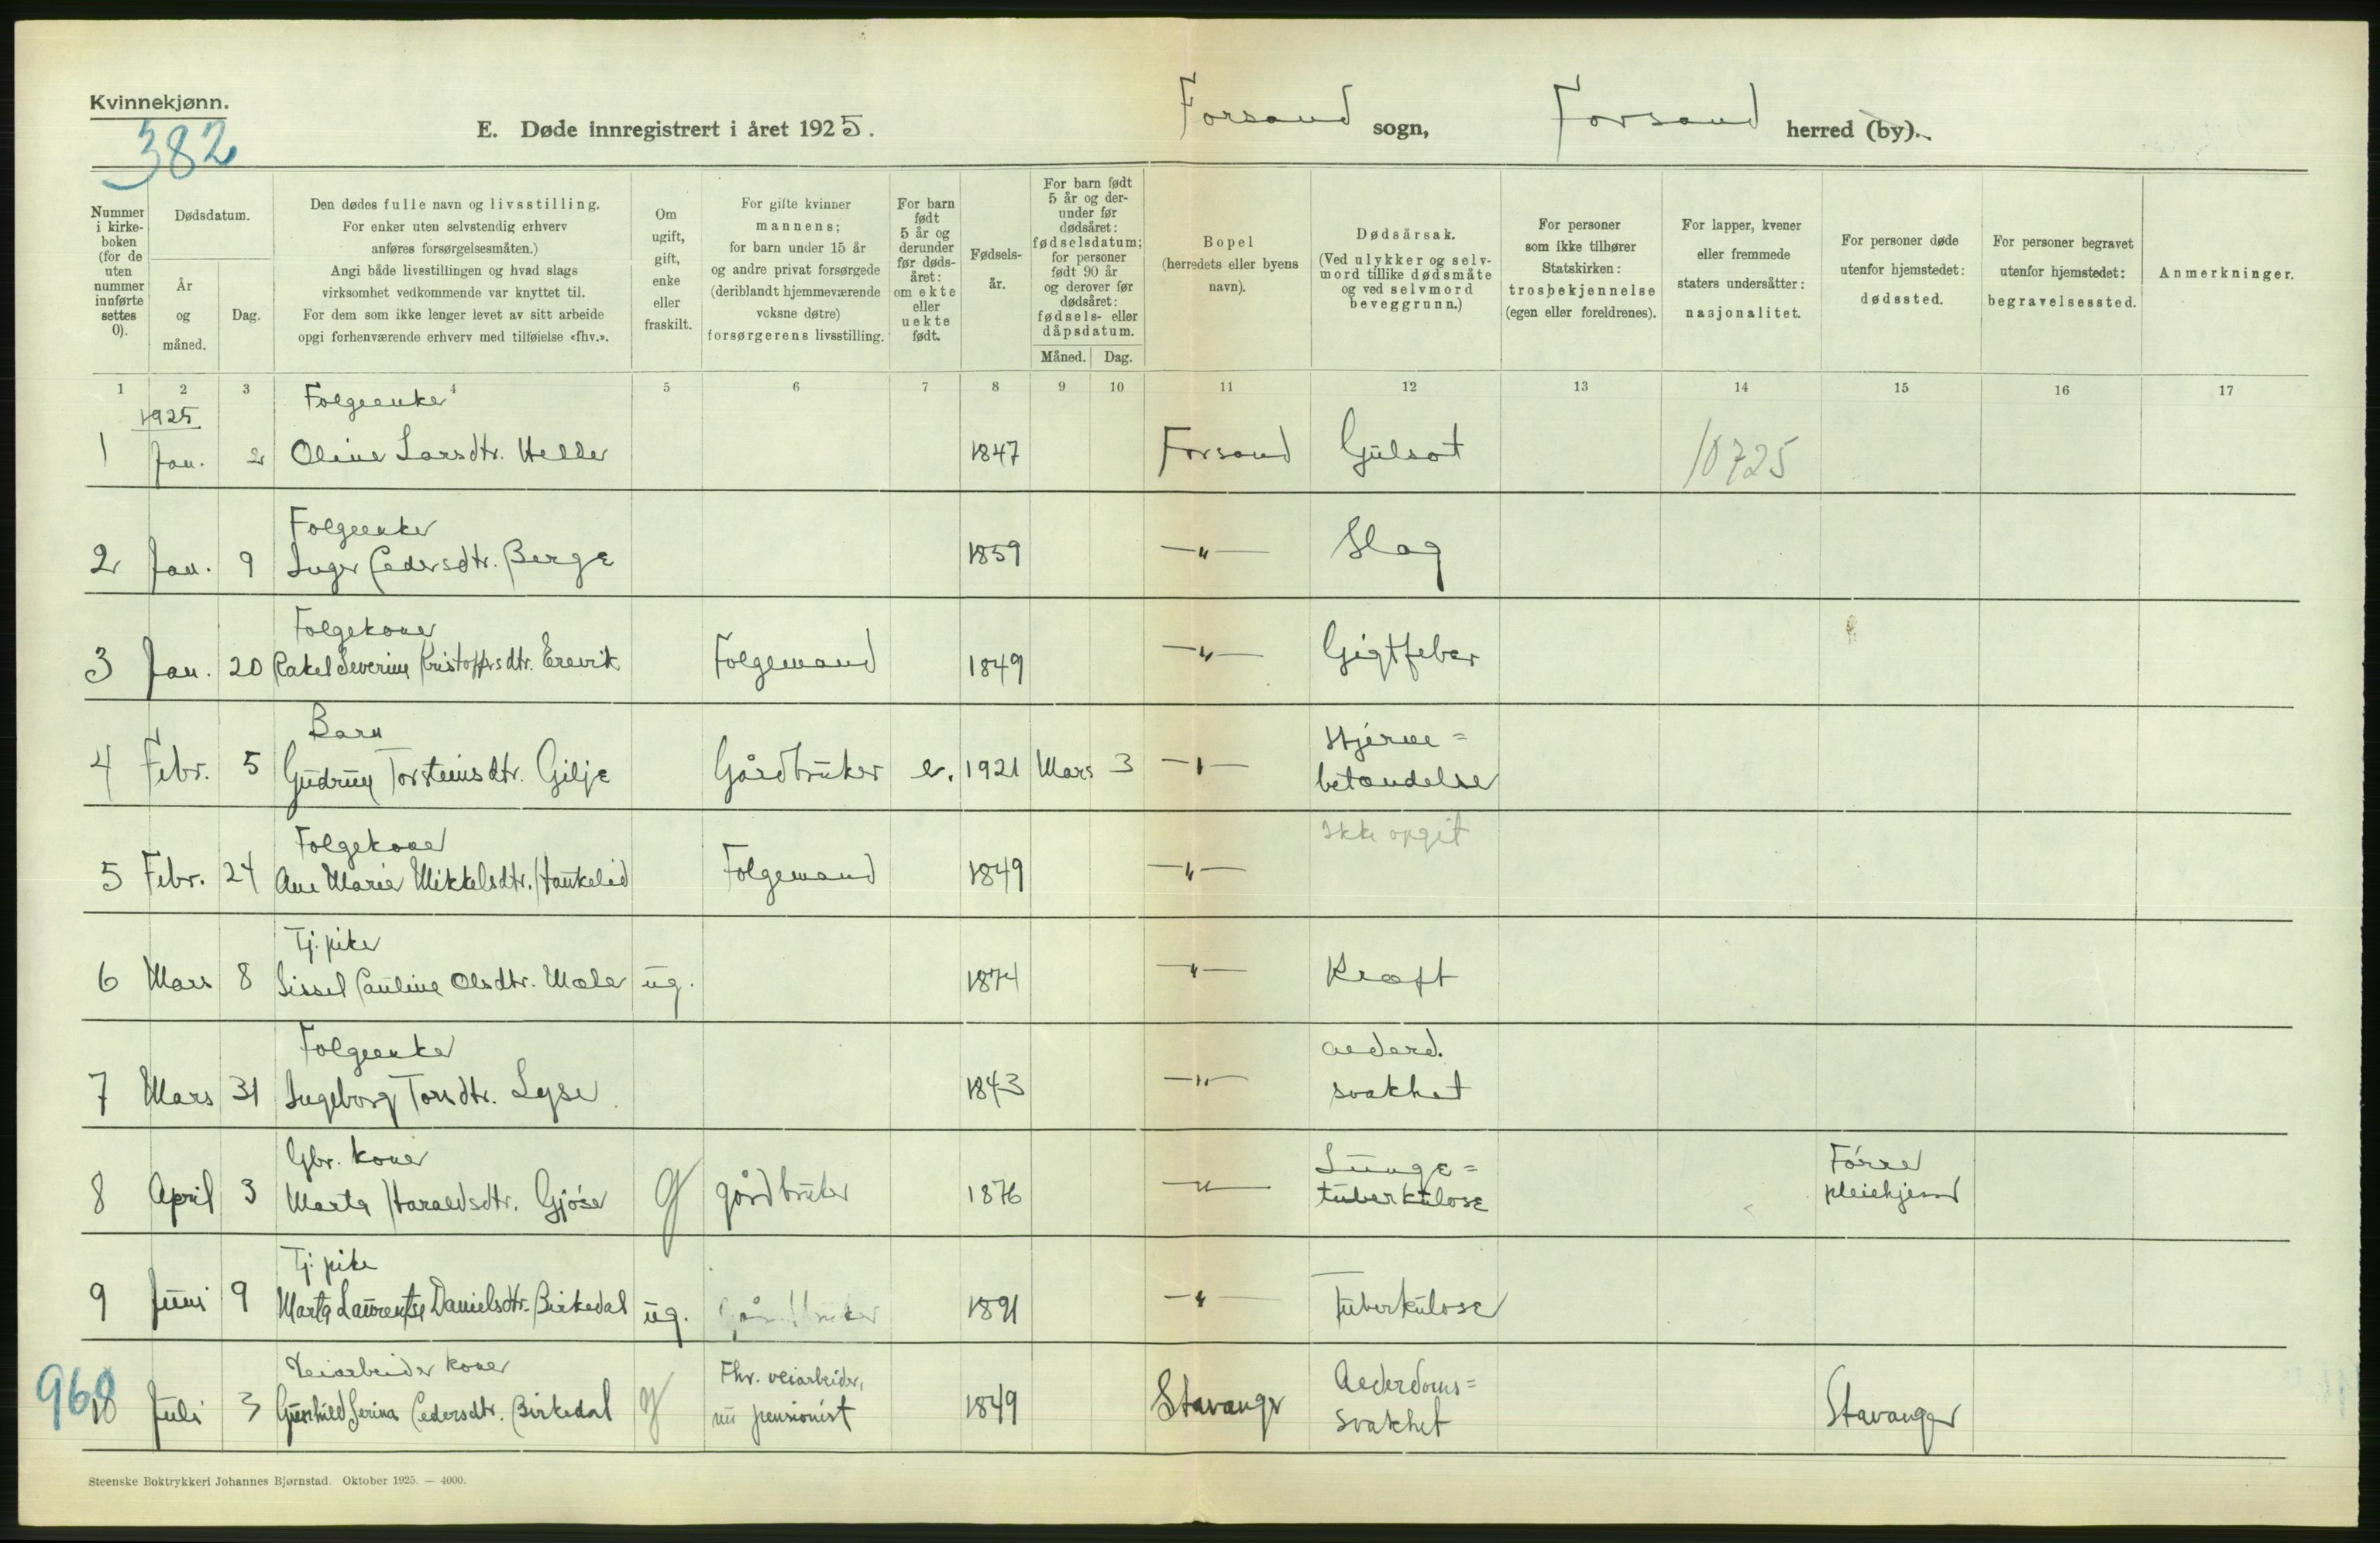 Kvinnekjønn.
382
E. Døde innregistrert i året 1925.
Forsand sogn, Forsand herred (by).
Nummer i kirkeboken (for de uten nummer innførte settes 0).
Dødsdatum.
År og måned.
Dag.
Den dødes fulle navn og livsstilling.
For enker uten selvstendig erhverv
anføres forsørgelsesmåten.)
Angi både livsstillingen og hvad slags
virksomhet vedkommende var knyttet til.
For dem som ikke lenger levet av sitt arbeide
opgi forhenværende erhverv med tilføielse «fhv.».
Om ugift, gift, enke eller fraskilt.
For gifte kvinner
mannens;
for barn under 15 år
og andre privat forsørgede
(deriblandt hjemmeværende
voksne døtre)
forsørgerens livsstilling.
For barn født 5 år og derunder før dødsåret: om ekte eller uekte født.
Fødselsår.
For barn født 5 år og derunder før dødsåret: fødselsdatum; for personer født 90 år og derover før dødsåret: fødsels- eller dåpsdatum.
Måned. Dag.
Bopel
(herredets eller byens
navn).
Dødsårsak.
(Ved ulykker og selvmord tillike dødsmåte og ved selvmord beveggrunn.)
For personer
som ikke tilhører
Statskirken:
trosbekjennelse
(egen eller foreldrenes).
For lapper, kvener
eller fremmede
staters undersåtter:
nasjonalitet.
For personer døde
utenfor hjemstedet:
dødssted.
For personer begravet
utenfor hjemstedet:
begravelsessted.
Anmerkninger.
1 2 3 4 5 6 7 8 9 10 11 12 13 14 15 16 17
1925 Folgeenke
1 Jan. 2 Oline Larsdtr. Helle 1847 Forsand Gulsot 10725
Folgeenke
2 Jan. 9 Inger Pedersdtr. Berge 1859 —"— Slag
Folgekone
3 Jan. 20 Rakel Severine Kristoffersdtr. Erevik Folgemand 1849 —"— Gigtfeber
Barn Hjerne=
4 Febr. 5 Gudrun Torsteinsdtr. Gilje Gårdbruker e. 1921 Mars 3 —"— betændelse
Folgekone Ikke opgit
5 Febr. 24 Ane Marie Mikkelsdtr. Haukelid Folgemand 1849 —"—
Tj. pike
6 Mars 8 Sissel Pauline Olsdtr. Mæle ug. 1874 —"— Kræft
Folgeenke Alderd.
7 Mars 31 Ingeborg Torsdtr. Lyse 1843 —"— svakhet
Gbr. kone Lunge= Førre
8 April 3 Marta Haraldsdtr. Gjøse g gårdbruker 1876 —"— tuberkulose pleiehjem
Tj. pike
9 Juni 9 Marta Laurentse Danielsdtr. Birkedal ug. Gårdbruker 1891 —"— Tuberkulose
968 Veiarbeider kone Fhv. veiarbeider, Alderdoms=
10 Juli 3 Gunhild Serina Pedersdtr. Birkedal g nu pensionist 1849 Stavanger svakhet Stavanger
Steenske Boktrykkeri Johannes Bjørnstad. Oktober 1925. — 4000.